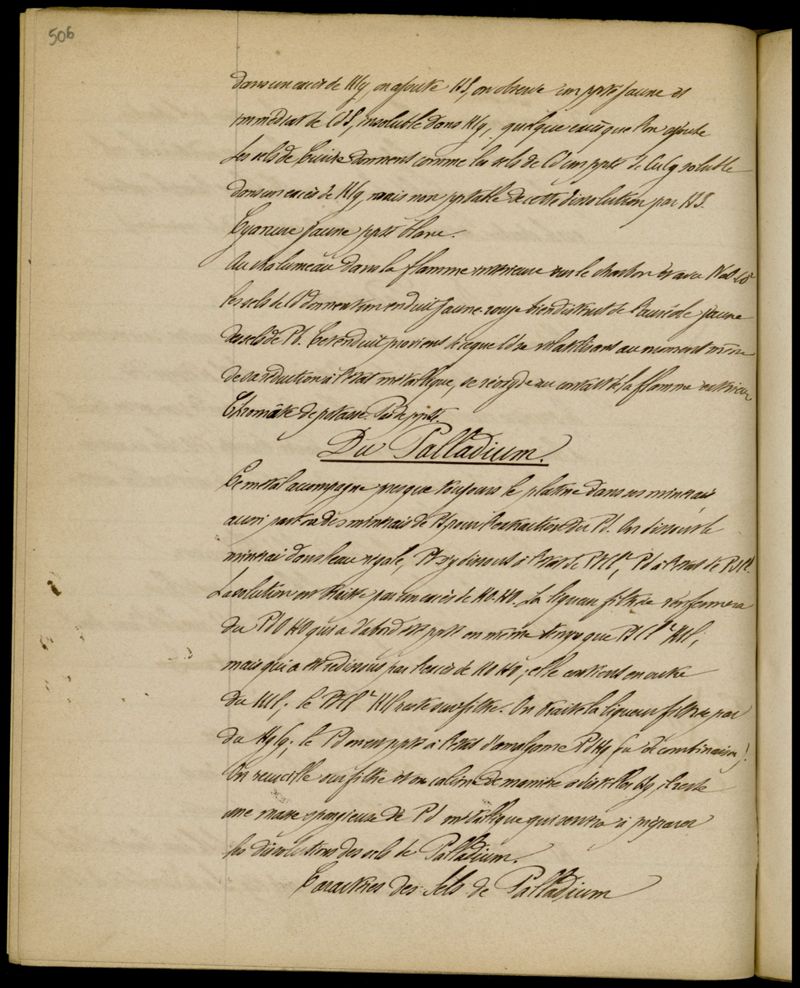 506
dans un excès de KCy on ajoute HS, on observe un ppté jaune et
immédiat de CdS, insoluble dans KCy, quelque excès que l'on ajoute
Les sels de Cuivre donnent comme les sels de Cd un ppté de CuCy soluble
dans un excès de KCy mais non pptable de cette dissolution par HS.
Cyanure jaune ppté blanc.
Au chalumeau dans la flamme intérieure sur le charbon et avec NaO CO²
les sels de Cd donnent un enduit jaune rouge bien distinct de l'auréole jaune
des sels de Pb. Cet enduit provient de ce que Cd se volatilisant au moment même
de sa réduction à l'état métallique, se réoxyde au contact de la flamme extérieure
Chromate de potasse. Pas de ppté.
Du Palladium.
Ce métal accompagne presque toujours le platine dans ses minerais
aussi part-on des minerais de Pt pour l'extraction du Pd. On dissout le
minerai dans l'eau régale, Pt s'y dissout à l'état de PtCl², Pd à l'état de PdCl.
La solution est traitée par un excès de KO.HO. La liqueur filtrée renfermera
du PdO HO qui a d'abord été ppté en même temps que PtCl² KCl,
mais qui a été redissous par l'excès de KO HO, elle contient en outre
du KCl; le PtCl² KCl reste sur filtre. On traite la liqueur filtrée par
du HgCy; le Pd en est ppté à l'état d'amalgame PdHg
On recueille sur filtre et on calcine de manière à distiller Hg, il reste
une masse spongieuse de Pd métallique qui servira à préparer
les dissolutions des sels de Palladium.
Caractères des Sels de Palladium